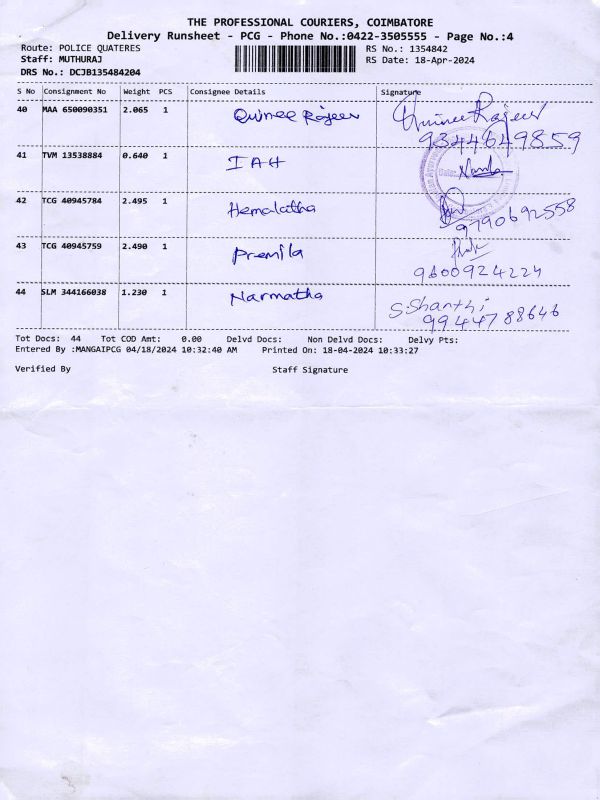 THE PROFESSIONAL COURIERS, COIMBATORE
Delivery Runsheet - PCG - Phone No.:0422-3505555 - Page No.:4
Route: POLICE QUATERES RS No.: 1354842
Staff: MUTHURAJ RS Date: 18-Apr-2024
DRS No.: DCJB135484204
S No Consignment No Weight PCS Consignee Details Signature
40 MAA 650090351 2.065 1 Quinee Rajeev Quinee Rajeev
9344649859
41 TVM 13538884 0.640 1 IAH
42 TCG 40945784 2.495 1 Hemalatha
9790692558
43 TCG 40945759 2.490 1 Premila
9600924224
44 SLM 344166038 1.230 1 Narmatha S.Shanthi
9944788646
Tot Docs: 44 Tot COD Amt: 0.00 Delvd Docs: Non Delvd Docs: Delvy Pts:
Entered By :MANGAIPCG 04/18/2024 10:32:40 AM Printed On: 18-04-2024 10:33:27
Verified By Staff Signature